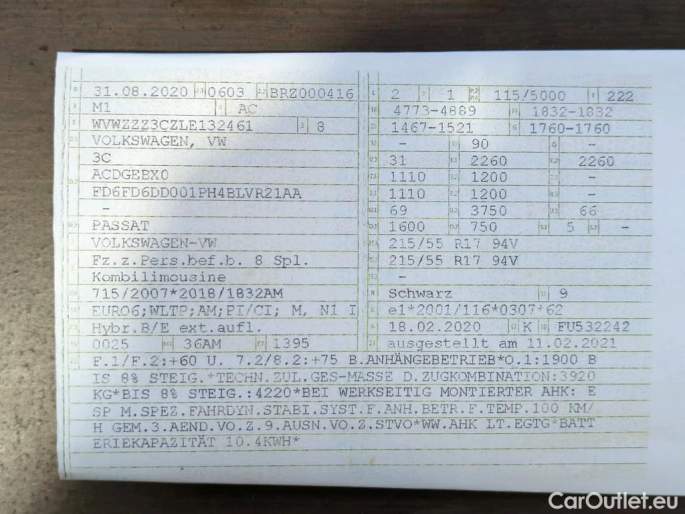 31.08.2020 0603 BRZ000416
M1 AC
WVWZZZ3CZLE132461 8
VOLKSWAGEN, VW
3C
ACDGEBX0
FD6FD6DD001PH4BLVR21AA
-
PASSAT
VOLKSWAGEN-VW
Fz.z.Pers.bef.b. 8 Spl.
Kombilimousine
715/2007*2018/1832AM
EURO6;WLTP;AM;PI/CI; M, N1 I
Hybr.B/E ext.aufl.
0025 36AM 1395
2 1 115/5000 222
4773-4889 1832-1832
1467-1521 1760-1760
- 90 -
31 2260 2260
1110 1200 -
1110 1200 -
69 3750 66
1600 750 5 -
215/55 R17 94V
215/55 R17 94V
-
Schwarz 9
e1*2001/116*0307*62
18.02.2020 K FU532242
ausgestellt am 11.02.2021
F.1/F.2:+60 U. 7.2/8.2:+75 B.ANHÄNGEBETRIEB*O.1:1900 B
IS 8% STEIG.*TECHN.ZUL.GES-MASSE D.ZUGKOMBINATION:3920
KG*BIS 8% STEIG.:4220*BEI WERKSEITIG MONTIERTER AHK: E
SP M.SPEZ.FAHRDYN.STABI.SYST.F.ANH.BETR.F.TEMP.100 KM/
H GEM.3.AEND.VO.Z.9.AUSN.VO.Z.STVO*WW.AHK LT.EGTG*BATT
ERIEKAPAZITÄT 10.4KWH*
CarOutlet.eu